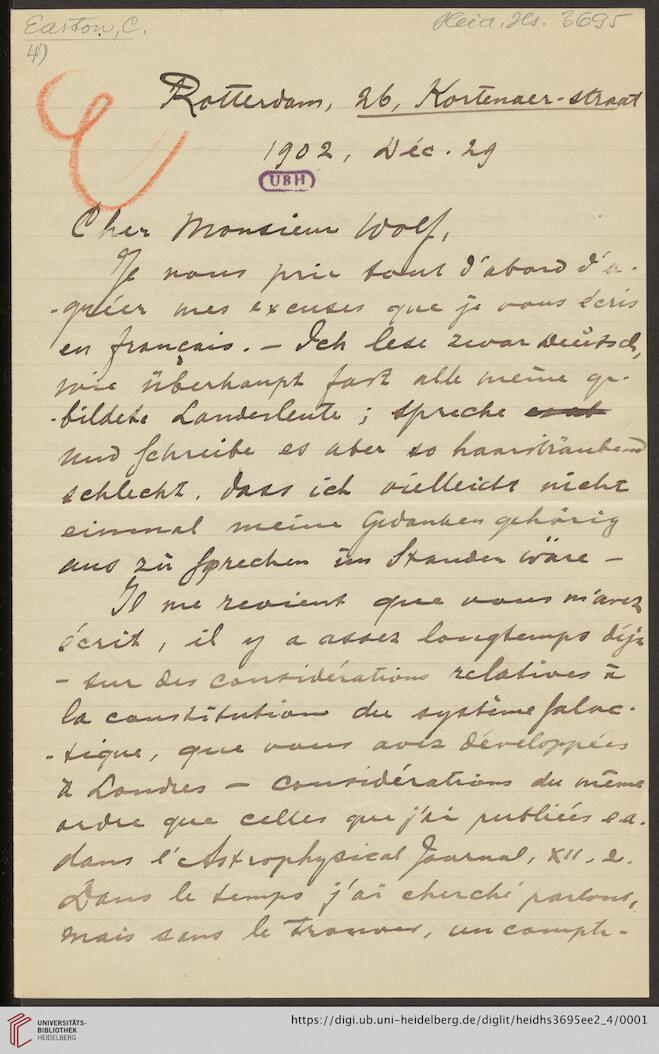 Easton, C.
Heid. Hs. 3695
4)
Rotterdam, 26, Kortenaer-straat
1902, Déc. 29
UBH
Cher Monsieur Wolf,
Je vous prie tout d'abord d'a-
-gréer mes excuses que je vous écris
en français. — Ich lese zwar Deutsch,
wie überhaupt fast alle meine ge-
-bildete Landesleute ; spreche
und schreibe es aber so haarsträubend
schlecht, dass ich vielleicht nicht
einmal meine Gedanken gehörig
aus zu sprechen im Standen wäre —
Il me revient que vous m'avez
écrit, il y a assez longtemps déjà
— sur des considérations relatives à
la constitution du système galac-
-tique, que vous avez développées
à Londres — considérations du même
ordre que celles que j'ai publiées e.a.
dans l'Astrophysical Journal, XII. 2.
Dans le temps j'ai cherché partout,
mais sans le trouver, un compte-
UNIVERSITÄTS-
BIBLIOTHEK
HEIDELBERG
https://digi.ub.uni-heidelberg.de/diglit/heidhs3695ee2_4/0001